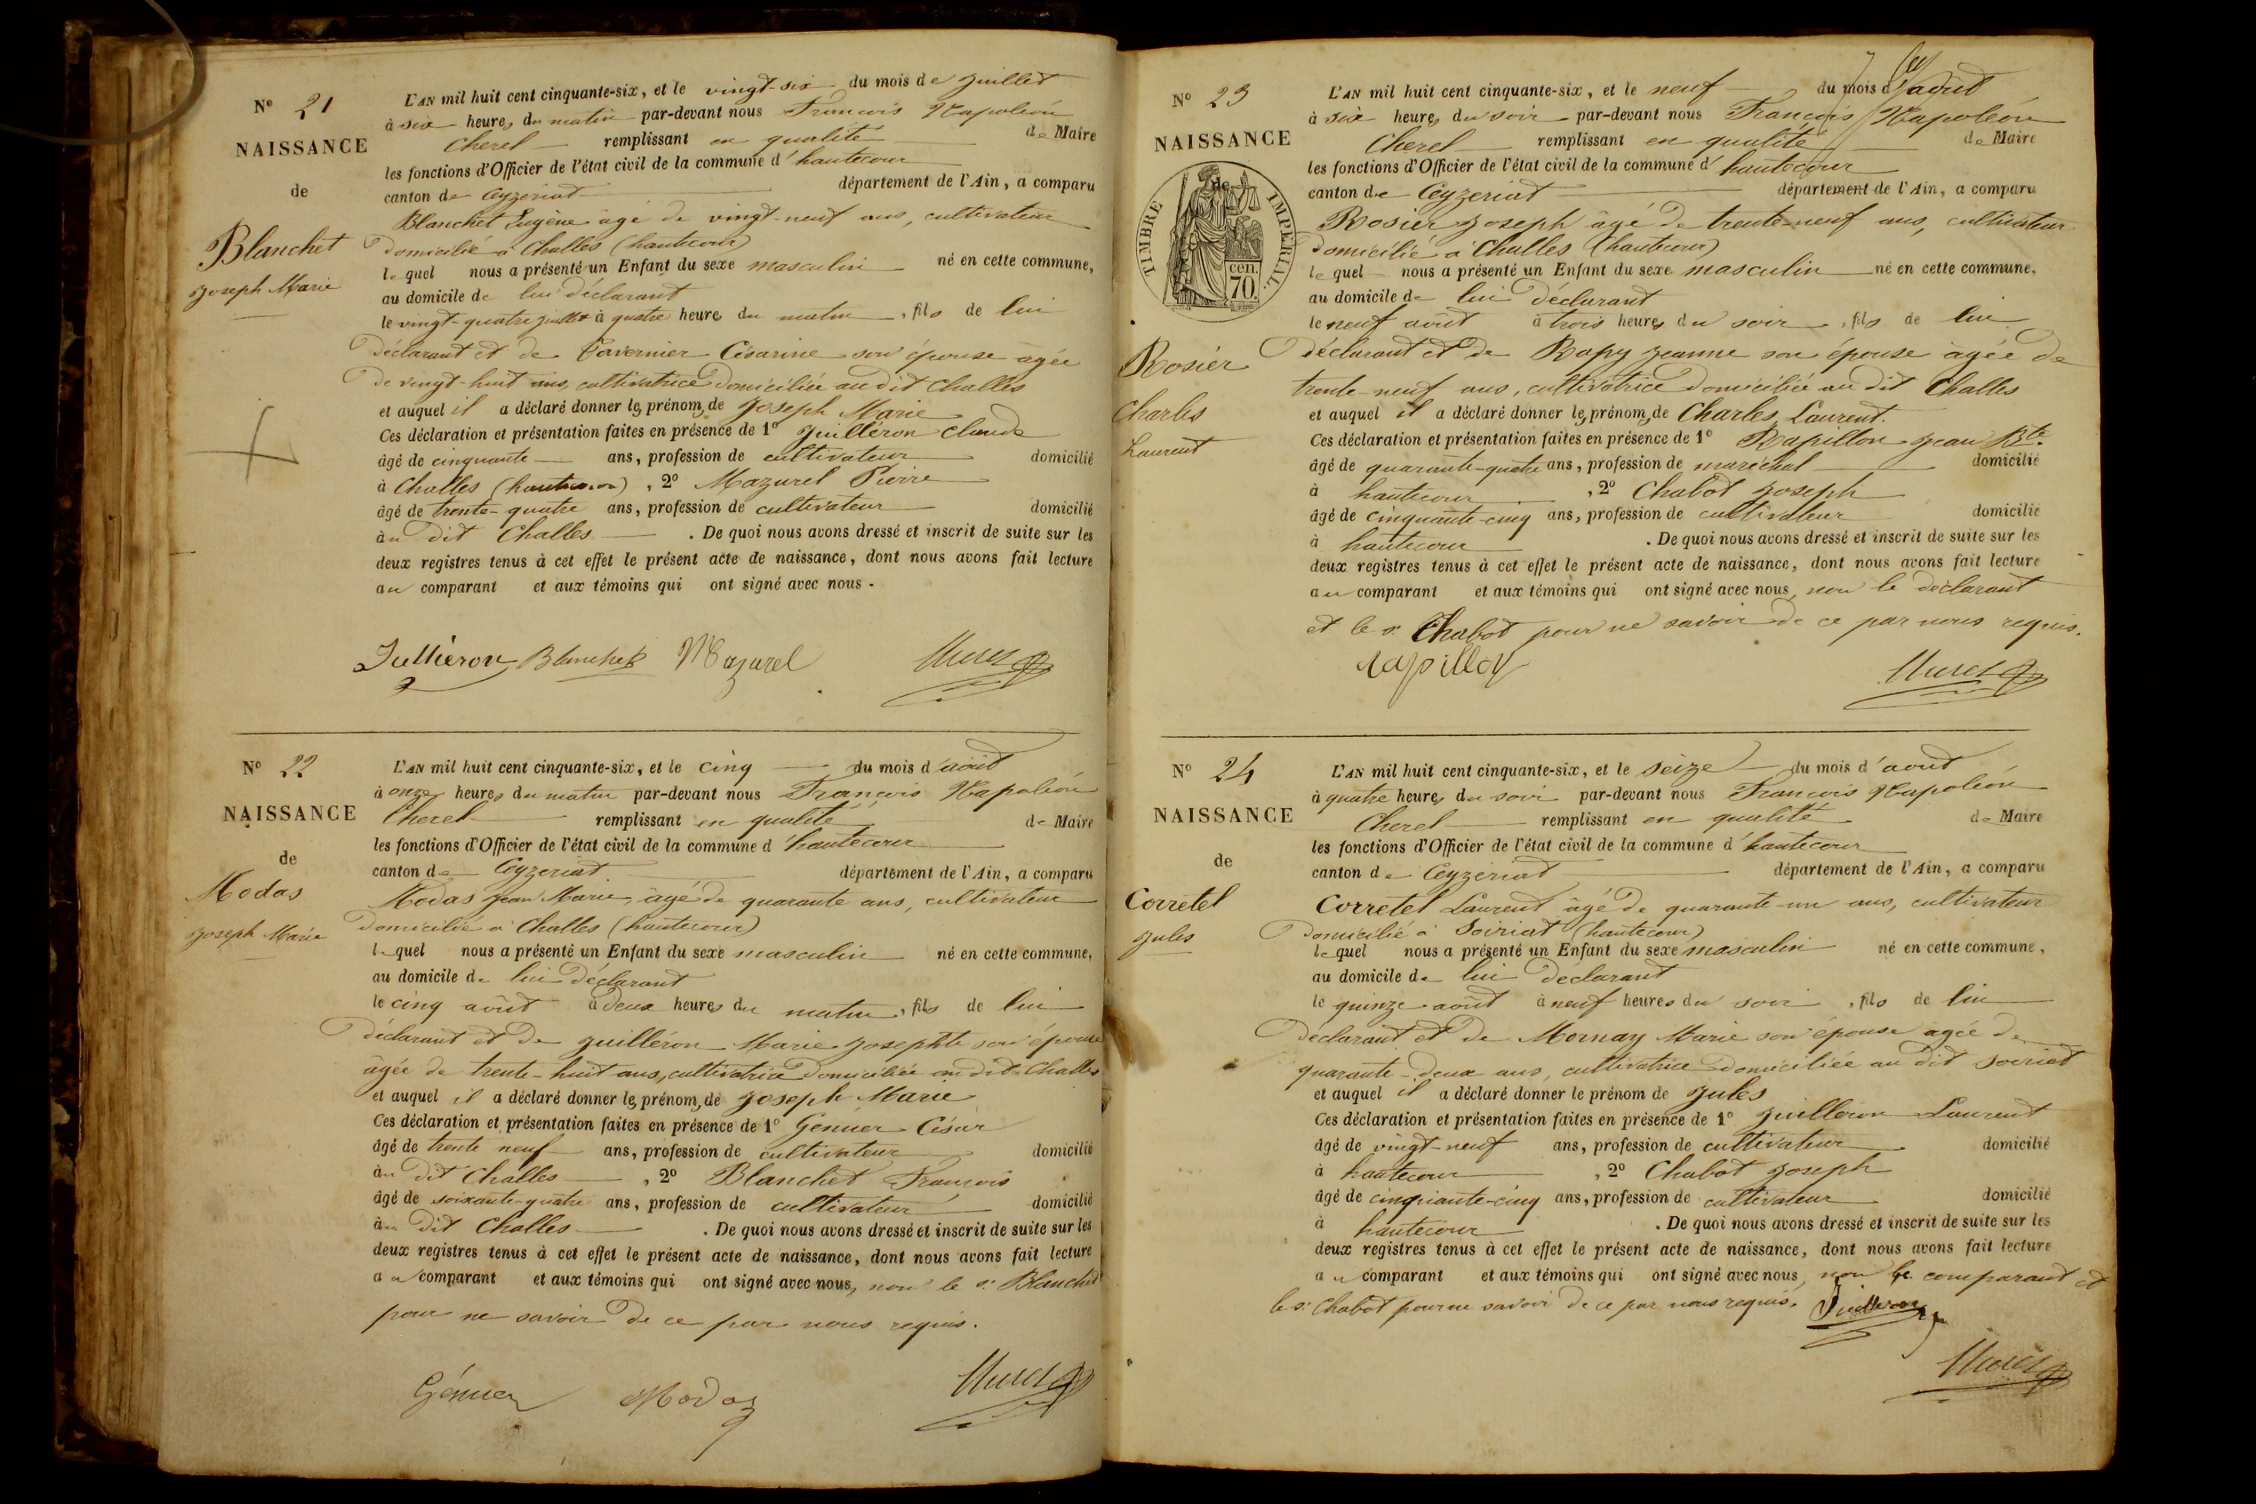 N° 21
NAISSANCE
de
Blanchet
Joseph Marie
L'AN mil huit cent cinquante-six, et le vingt-six du mois de juillet
à six heures du matin par-devant nous François Napoléon
Cherel remplissant en qualité de Maire
les fonctions d'Officier de l'état civil de la commune d'hautecour
canton de Ceyzeriat département de l'Ain, a comparu
Blanchet Eugène âgé de vingt-neuf ans, cultivateur
domicilié à Challes (hautecour)
lequel nous a présenté un Enfant du sexe masculin né en cette commune,
au domicile de lui déclarant
le vingt-quatre juillet à quatre heures du matin, fils de lui
déclarant et de Tavernier Césarine son épouse âgée
de vingt-huit ans, cultivatrice domiciliée au dit Challes
et auquel il a déclaré donner les prénoms de Joseph Marie
Ces déclaration et présentation faites en présence de 1° Juilléron Claude
âgé de cinquante ans, profession de cultivateur domicilié
à Challes (hautecour), 2° Mazurel Pierre
âgé de trente-quatre ans, profession de cultivateur domicilié
au dit Challes. De quoi nous avons dressé et inscrit de suite sur les
deux registres tenus à cet effet le présent acte de naissance, dont nous avons fait lecture
au comparant et aux témoins qui ont signé avec nous.
Juilléron Blanchet Mazurel
N° 22
NAISSANCE
de
Modas
Joseph Marie
L'AN mil huit cent cinquante-six, et le cinq du mois d'août
à onze heures du matin par-devant nous François Napoléon
Cherel remplissant en qualité de Maire
les fonctions d'Officier de l'état civil de la commune d'hautecour
canton de Ceyzeriat département de l'Ain, a comparu
Modas Jean Marie âgé de quarante ans, cultivateur
domicilié à Challes (hautecour)
lequel nous a présenté un Enfant du sexe masculin né en cette commune,
au domicile de lui déclarant
le cinq août à deux heures du matin, fils de lui
déclarant et de Juilléron Marie Josephte son épouse
âgée de trente-huit ans, cultivatrice domiciliée au dit Challes
et auquel il a déclaré donner les prénoms de Joseph Marie
Ces déclaration et présentation faites en présence de 1° Génier César
âgé de trente neuf ans, profession de cultivateur domicilié
au dit Challes, 2° Blanchet François
âgé de soixante-quatre ans, profession de cultivateur domicilié
au dit Challes. De quoi nous avons dressé et inscrit de suite sur les
deux registres tenus à cet effet le présent acte de naissance, dont nous avons fait lecture
au comparant et aux témoins qui ont signé avec nous, non le sr Blanchet
pour ne savoir de ce par nous requis.
Génier Modas
N° 23
NAISSANCE
de
TIMBRE IMPÉRIAL
70 cen.
Rosier
Charles
Laurent
L'AN mil huit cent cinquante-six, et le neuf du mois d'août
à six heures du soir par-devant nous François Napoléon
Cherel remplissant en qualité de Maire
les fonctions d'Officier de l'état civil de la commune d'hautecour
canton de Ceyzeriat département de l'Ain, a comparu
Rosier Joseph âgé de trente-neuf ans, cultivateur
domicilié à Challes (hautecour)
lequel nous a présenté un Enfant du sexe masculin né en cette commune,
au domicile de lui déclarant
le neuf août à trois heures du soir, fils de lui
déclarant et de Rapy Jeanne son épouse âgée de
trente-neuf ans, cultivatrice domiciliée au dit Challes
et auquel il a déclaré donner les prénoms de Charles Laurent.
Ces déclaration et présentation faites en présence de 1° Rapillon Jean Bte
âgé de quarante-quatre ans, profession de maréchal domicilié
à hautecour, 2° Chabot Joseph
âgé de cinquante-cinq ans, profession de cultivateur domicilié
à hautecour. De quoi nous avons dressé et inscrit de suite sur les
deux registres tenus à cet effet le présent acte de naissance, dont nous avons fait lecture
au comparant et aux témoins qui ont signé avec nous, non le déclarant
et le sr Chabot pour ne savoir de ce par nous requis.
Rapillon
N° 24
NAISSANCE
de
Corretel
Jules
L'AN mil huit cent cinquante-six, et le seize du mois d'août
à quatre heures du soir par-devant nous François Napoléon
Cherel remplissant en qualité de Maire
les fonctions d'Officier de l'état civil de la commune d'hautecour
canton de Ceyzeriat département de l'Ain, a comparu
Corretel Laurent âgé de quarante-un ans, cultivateur
domicilié à Soiriat (hautecour)
lequel nous a présenté un Enfant du sexe masculin né en cette commune,
au domicile de lui déclarant
le quinze août à neuf heures du soir, fils de lui
déclarant et de Mornay Marie son épouse âgée de
quarante-deux ans, cultivatrice domiciliée au dit Soiriat
et auquel il a déclaré donner le prénom de Jules
Ces déclaration et présentation faites en présence de 1° Juilleron Laurent
âgé de vingt-neuf ans, profession de cultivateur domicilié
à hautecour, 2° Chabot Joseph
âgé de cinquante-cinq ans, profession de cultivateur domicilié
à hautecour. De quoi nous avons dressé et inscrit de suite sur les
deux registres tenus à cet effet le présent acte de naissance, dont nous avons fait lecture
au comparant et aux témoins qui ont signé avec nous, non le comparant et
le sr Chabot pour ne savoir de ce par nous requis. Juilleron